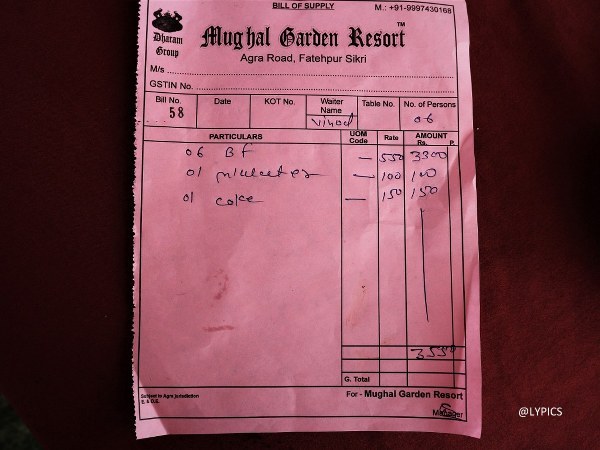 BILL OF SUPPLY
M.: +91-9997430168
Dharam Group
Mughal Garden Resort™
Agra Road, Fatehpur Sikri
M/s
GSTIN No.
Bill No. 58 Date KOT No. Waiter Name Vinod Table No. No. of Persons 06
PARTICULARS UOM Code Rate AMOUNT Rs. P.
06 Bf — 550 3300
01 — 100 100
01 coke — 150 150
3550
G. Total
Subject to Agra jurisdiction
E. & O.E.
For - Mughal Garden Resort
Manager
@LYPICS